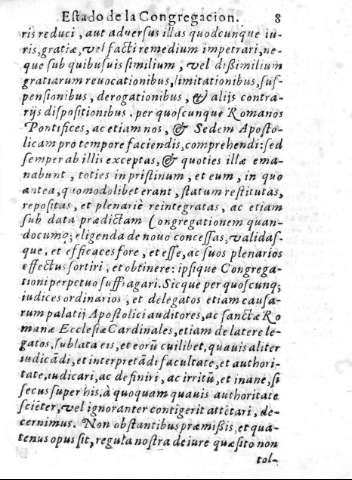 Estado de la Congregacion. 8
ris reduci, aut aduersus illas quodcunque iu-
ris, gratiæ, vel facti remedium impetrari, ne-
que sub quibusuis similium, vel dißimilium
gratiarum reuocationibus, limitationibus, sus-
pensionibus, derogationibus, & alijs contra-
rijs dispositionibus. per quoscunque Romanos
Pontifices, ac etiam nos, & Sedem Aposto-
licam pro tempore faciendis, comprehendi: sed
semper ab illis exceptas, & quoties illæ ema-
nabunt, toties in pristinum, et eum, in quo
antea, quomodolibet erant, statum restitutas,
repositas, et plenariè reintegratas, ac etiam
sub data prædictam Congregationem quan-
documq; eligenda de nouo concessas, validas-
que, et efficaces fore, et esse, ac suos plenarios
effectus sortiri, et obtinere: ipsique Congrega-
tioni perpetuo suffragari. Sicque per quoscunq;
iudices ordinarios, et delegatos etiam causa-
rum palatij Apostolici auditores, ac sanctæ Ro
manæ Ecclesiæ Cardinales, etiam de latere le-
gatos, sublata eis, et eorū cuilibet, quauis aliter
iudicādi, et interpretādi facultate, et authori-
tate, iudicari, ac definiri, ac irritū, et inane, si
secus super his, à quoquam quauis authoritate
sciēter, vel ignoranter contigerit attētari, de-
cernimus. Non obstantibus præmißis, et qua-
tenus opus sit, regula nostra de iure quæsito non
tol-